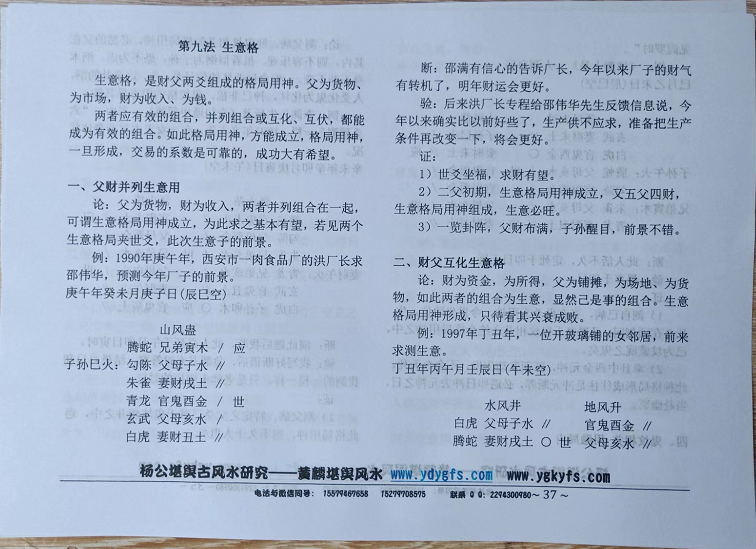 第九法 生意格
生意格，是财父两爻组成的格局用神。父为货物、
为市场，财为收入、为钱。
两者应有效的组合，并列组合或互化、互伏，都能
成为有效的组合。如此格局用神，方能成立，格局用神，
一旦形成，交易的系数是可靠的，成功大有希望。
一、父财并列生意用
论：父为货物，财为收入，两者并列组合在一起，
可谓生意格局用神成立，为此求之基本有望，若见两个
生意格局夹世爻，此次生意子的前景。
例：1990年庚午年，西安市一肉食品厂的洪厂长求
邵伟华，预测今年厂子的前景。
庚午年癸未月庚子日(辰巳空)
山风蛊
腾蛇 兄弟寅木 / 应
子孙巳火：勾陈 父母子水 //
朱雀 妻财戌土 //
青龙 官鬼酉金 / 世
玄武 父母亥水 /
白虎 妻财丑土 //
断：邵满有信心的告诉厂长，今年以来厂子的财气
有转机了，明年财运会更好。
验：后来洪厂长专程给邵伟华先生反馈信息说，今
年以来确实比以前好些了，生产供不应求，准备把生产
条件再改变一下，将会更好。
证：
1）世爻坐福，求财有望。
2）二父初期，生意格局用神成立，又五父四财，
生意格局用神组成，生意必旺。
3）一览卦阵，父财布满，子孙醒目，前景不错。
二、财父互化生意格
论：财为资金，为所得，父为铺摊，为场地、为货
物，如此两者的组合为生意，显然已是事的组合。生意
格局用神形成，只待看其兴衰成败。
例：1997年丁丑年，一位开玻璃铺的女邻居，前来
求测生意。
丁丑年丙午月壬辰日(午未空)
水风井 地风升
白虎 父母子水 // 官鬼酉金 //
腾蛇 妻财戌土 〇 世 父母亥水 //
杨公堪舆古风水研究——黄麟堪舆风水 www.ydygfs.com www.ygkyfs.com
电话与微信同号： 15579467658 15279708575 联系QQ：2294300980 ～37～